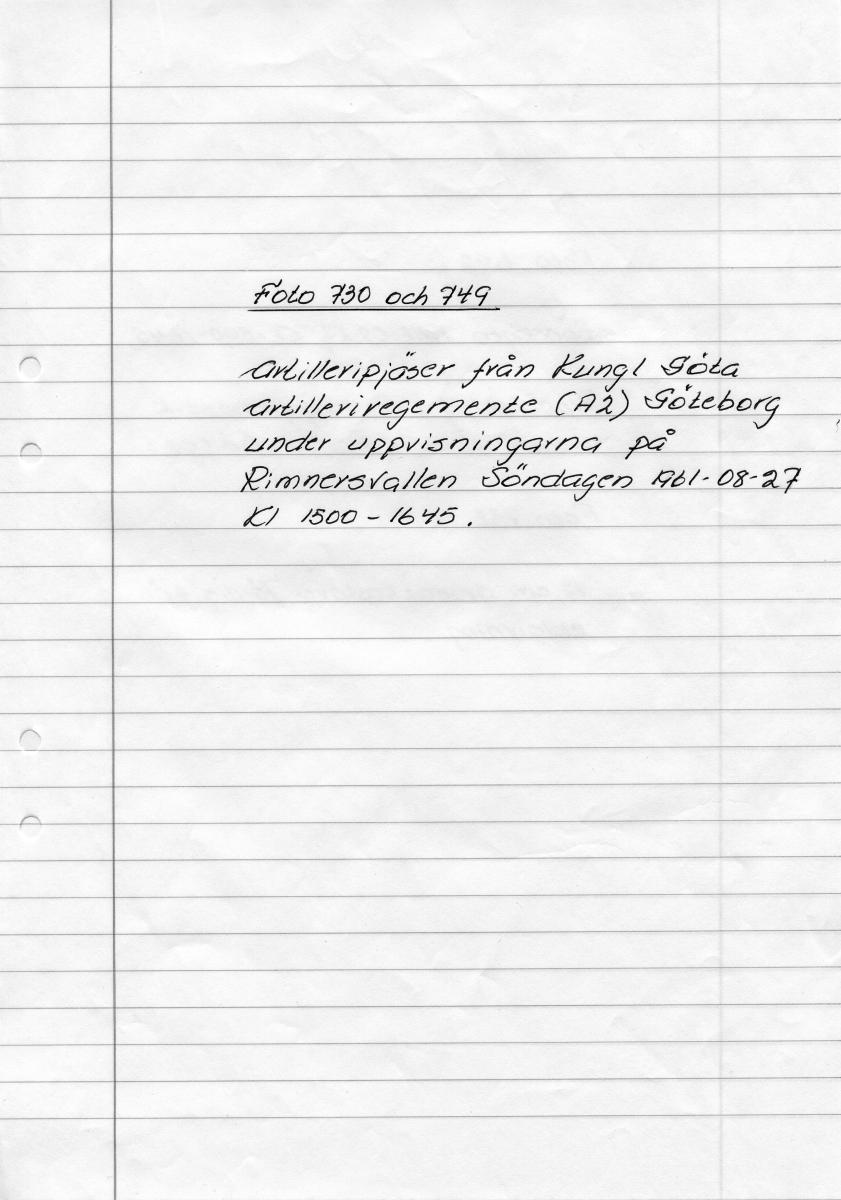 Foto 730 och 749
Artilleripjäser från Kungl Göta
Artilleriregemente (A2) Göteborg
under uppvisningarna på
Rimnersvallen Söndagen 1961-08-27
Kl 1500-1645.